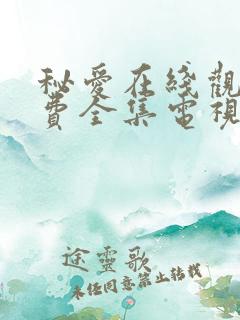 秘爱在线觀
費全集電視
途靈歌
未经同意禁止转载